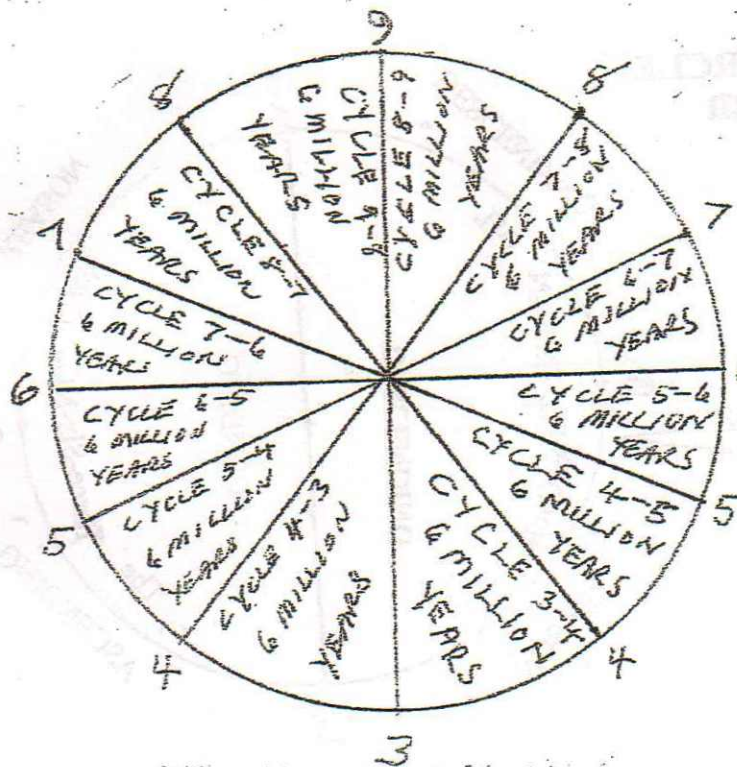 9
CYCLE 8-9
6 MILLION
YEARS
8
CYCLE 7-8
6 MILLION
YEARS
7
CYCLE 6-7
6 MILLION
YEARS
CYCLE 5-6
6 MILLION
YEARS
5
CYCLE 4-5
6 MILLION
YEARS
4
CYCLE 3-4
6 MILLION
YEARS
3
CYCLE 4-3
6 MILLION
YEARS
4
CYCLE 5-4
6 MILLION
YEARS
5
CYCLE 6-5
6 MILLION
YEARS
6
CYCLE 7-6
6 MILLION
YEARS
7
CYCLE 8-7
6 MILLION
YEARS
8
CYCLE 9-8
6 MILLION
YEARS